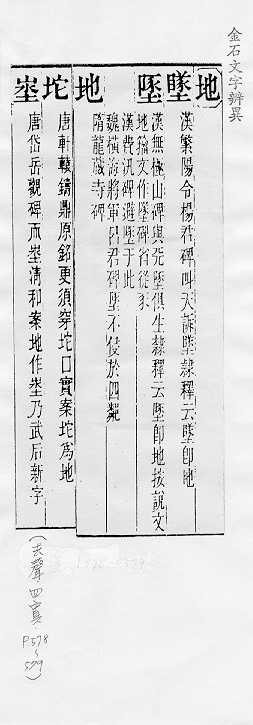 金石文字辨異
地
墜
漢繁陽令楊君碑叫天訴墜隸釋云墜即地
墬
漢無極山碑與天墬俱生隸釋云墬即地按說文
地籀文作墬碑省從豕
漢費汎碑避墬于此
魏橫海將軍呂君碑墬不侵於四鄰
地
隋龍藏寺碑
坨
唐軒轅鑄鼎原銘更須穿坨口實案坨為地
埊
唐岱岳觀碑而埊清和案地作埊乃武后新字
(去聲四寘
P578~579)